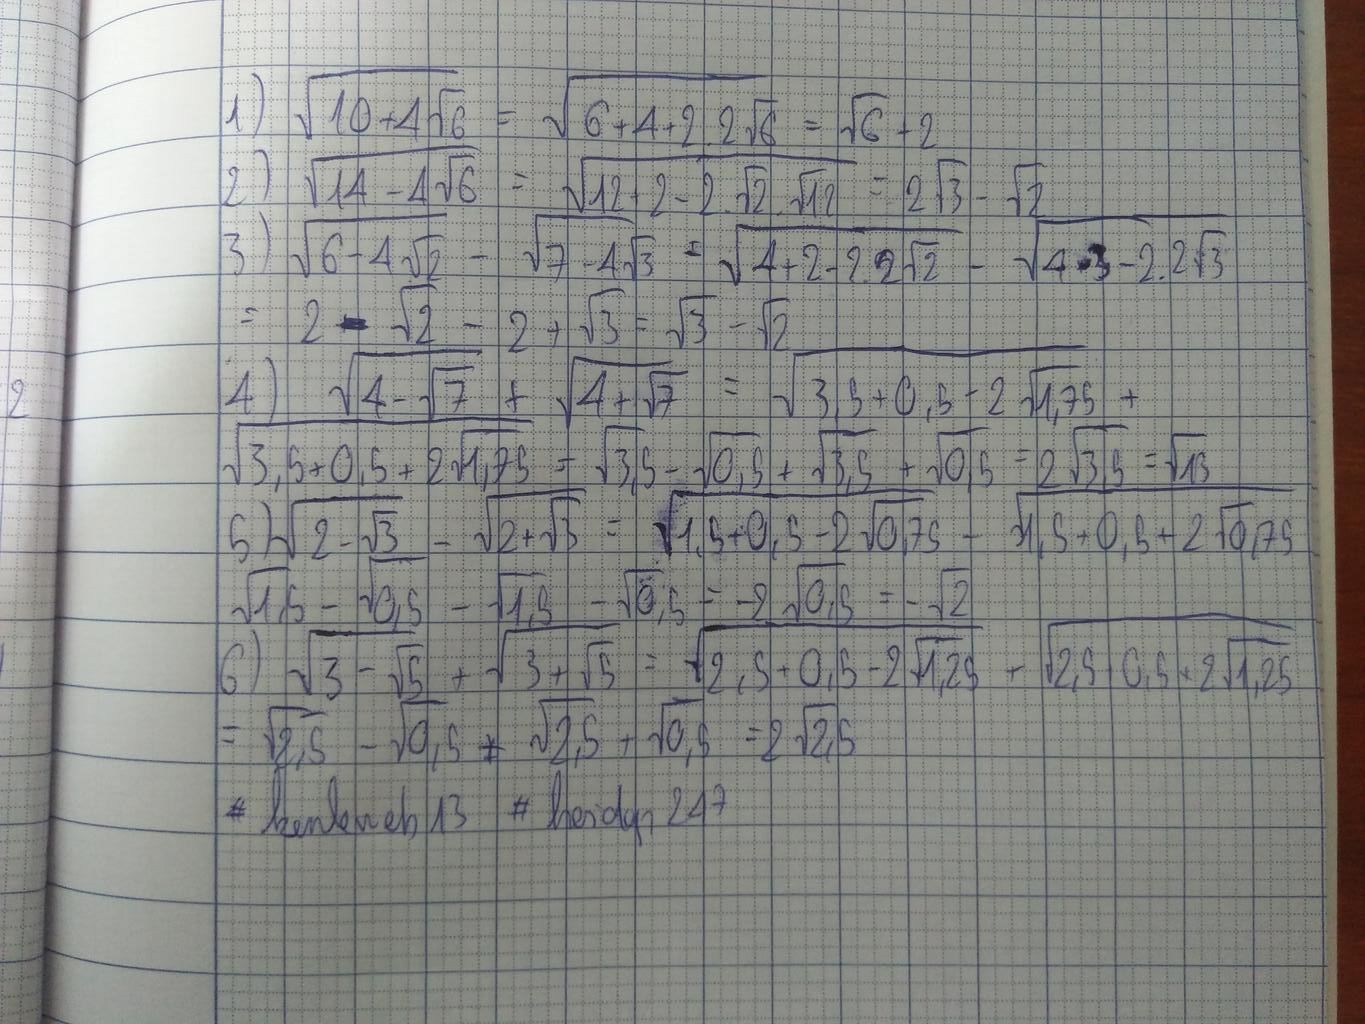 1) √(10+4√6) = √(6+4+2.2√6) = √6+2
2) √(14-4√6) = √(12+2-2.√2.√12) = 2√3-√2
3) √(6-4√2) - √(7-4√3) = √(4+2-2.2√2) - √(4+3-2.2√3)
= 2-√2-2+√3=√3-√2
4) √(4-√7) + √(4+√7) = √(3,5+0,5-2√1,75) +
√(3,5+0,5+2√1,75) = √3,5-√0,5+√3,5+√0,5=2√3,5=√13
5) √(2-√3) - √(2+√3) = √(1,5+0,5-2√0,75) - √(1,5+0,5+2√0,75)
√1,5-√0,5-√1,5-√0,5=-2√0,5=-√2
6) √(3-√5) + √(3+√5) = √(2,5+0,5-2√1,25) + √(2,5+0,5+2√1,25)
= √2,5-√0,5+√2,5+√0,5=2√2,5
2